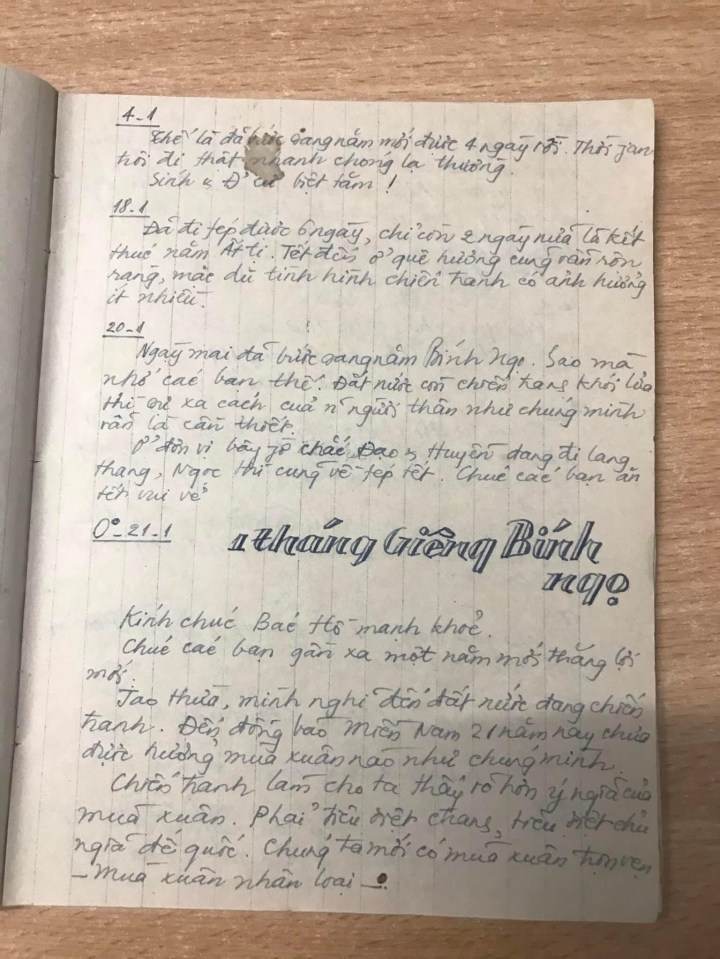 4-1
Thế là đã bước sang năm mới được 4 ngày rồi. Thời jan
trôi đi thật nhanh chóng lạ thường.
Sinh & Đ/c biệt tăm!
18-1
Đã đi fép được 6 ngày, chỉ còn 2 ngày nữa là kết
thúc năm Ất tị. Tết đến ở quê hương cũng vẫn rộn
ràng, mặc dù tình hình chiến tranh có ảnh hưởng
ít nhiều.
20-1
Ngày mai đã bước sang năm Bính Ngọ. Sao mà
nhớ các bạn thế. Đất nước còn chiến tranh khói lửa
thì sự xa cách của người thân như chúng mình
vẫn là cần thiết.
Ở đơn vị bây jờ chắc Đạo & Huyền đang đi lang
thang, Ngọc thì cũng về fép tết. Chúc các bạn ăn
tết vui vẻ
0°-21-1
1 tháng Giêng Bính
ngọ
Kính chúc Bác Hồ mạnh khoẻ.
Chúc các bạn gần xa một năm mới thắng lợi
mới.
Jao thừa, mình nghĩ đến đất nước đang chiến
tranh. Đến đồng bào Miền Nam 21 năm nay chưa
được hưởng mùa xuân nào như chúng mình.
Chiến tranh làm cho ta thấy rõ hơn ý ngĩa của
mùa xuân. Phải tiêu diệt ctranh, tiêu diệt chủ
ngĩa đế quốc. Chúng ta mới có mùa xuân trọn vẹn
- Mùa xuân nhân loại -.